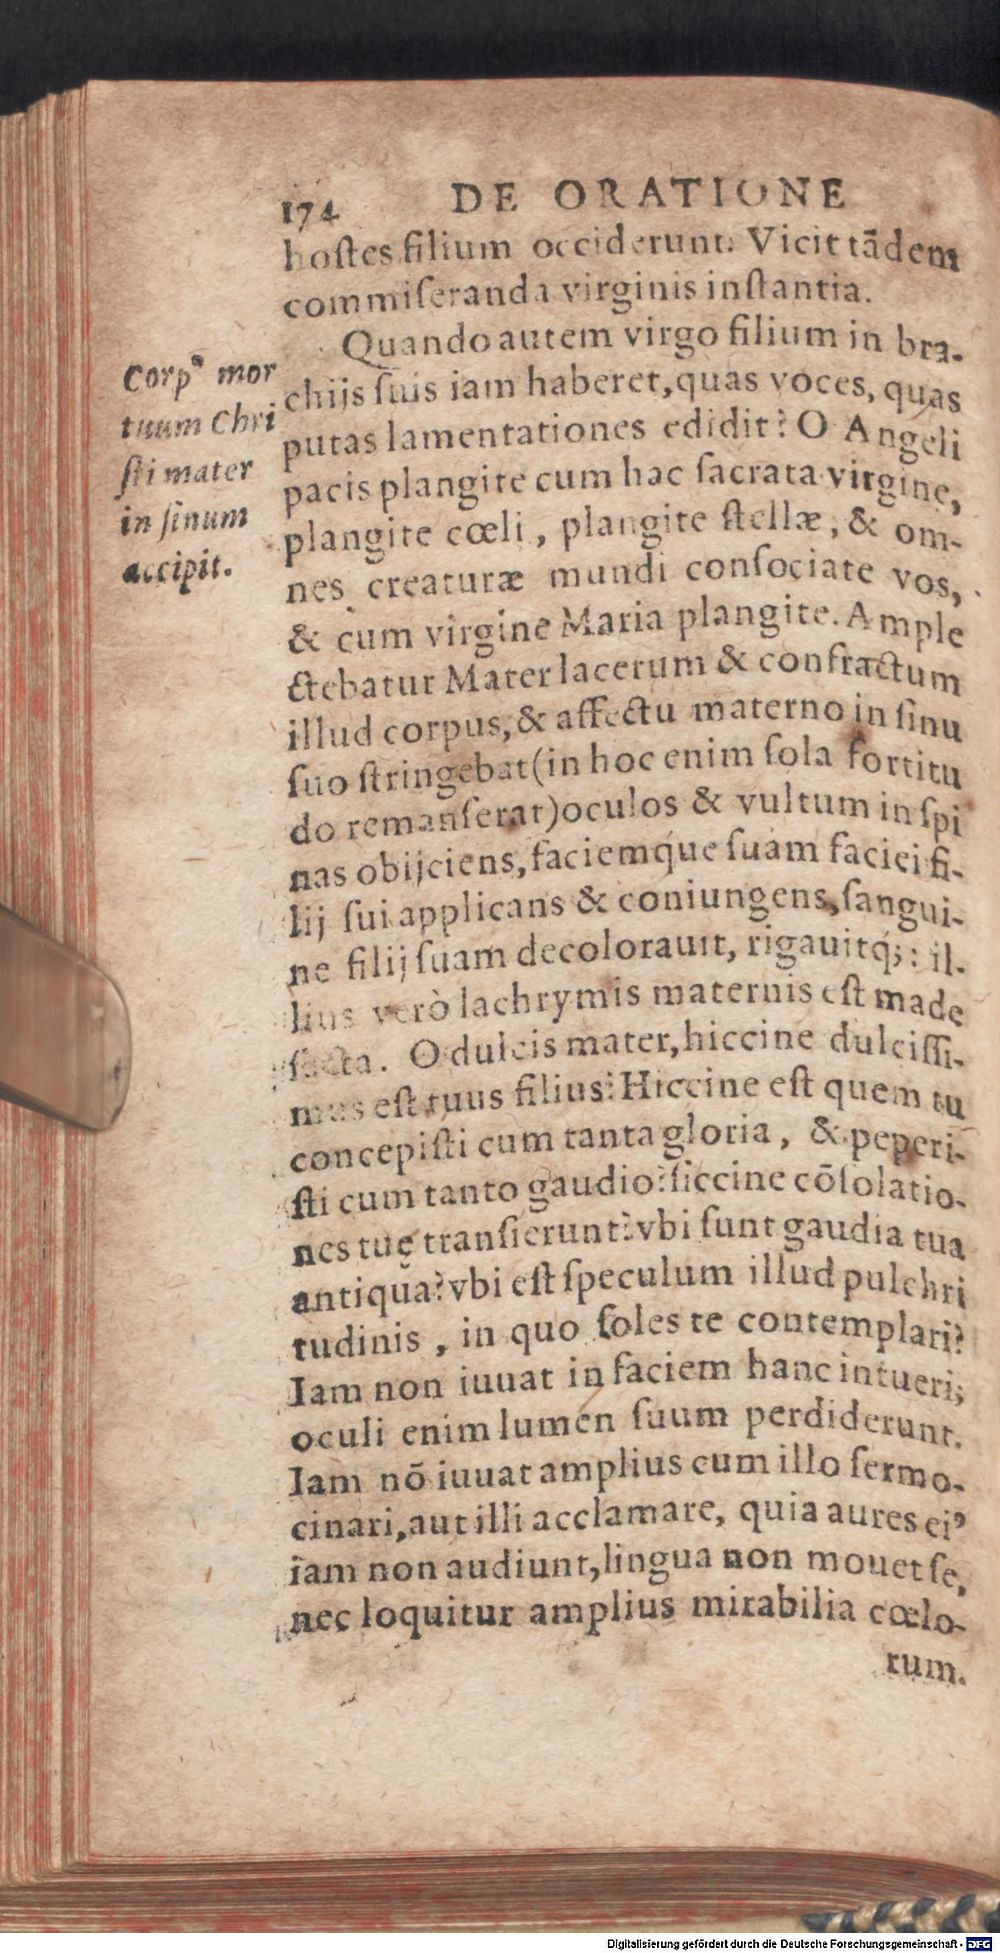 174 DE ORATIONE
hoſtes filium occiderunt. Vicit tãdem
commiſeranda virginis inſtantia.
Quando autem virgo filium in bra-
chijs ſuis iam haberet, quas voces, quas
putas lamentationes edidit? O Angeli
pacis plangite cum hac ſacrata virgine,
plangite cœli, plangite ſtellæ, & om-
nes creaturæ mundi conſociate vos,
& cum virgine Maria plangite. Ample
ctebatur Mater lacerum & confractum
illud corpus, & affectu materno in ſinu
ſuo ſtringebat (in hoc enim ſola fortitu
do remanſerat) oculos & vultum in ſpi
nas obijciens, faciemq́ue ſuam faciei fi-
lij ſui applicans & coniungens, ſangui-
ne filij ſuam decolorauit, rigauitq́;: il-
lius verò lachrymis maternis eſt made
facta. O dulcis mater, hiccine dulciſſi-
mus eſt tuus filius? Hiccine eſt quem tu
concepiſti cum tanta gloria, & peperi-
ſti cum tanto gaudio? ſiccine cõſolatio-
nes tuę tranſierunt? vbi ſunt gaudia tua
antiqua? vbi eſt ſpeculum illud pulchri
tudinis, in quo ſoles te contemplari?
Iam non iuuat in faciem hanc intueri;
oculi enim lumen ſuum perdiderunt.
Iam nõ iuuat amplius cum illo ſermo-
cinari, aut illi acclamare, quia aures ei⁹
iam non audiunt, lingua non mouet ſe,
nec loquitur amplius mirabilia cœlo-
rum.
Corp⁹ mor
tuum Chri
ſti mater
in ſinum
accipit.
Digitalisierung gefördert durch die Deutsche Forschungsgemeinschaft - DFG